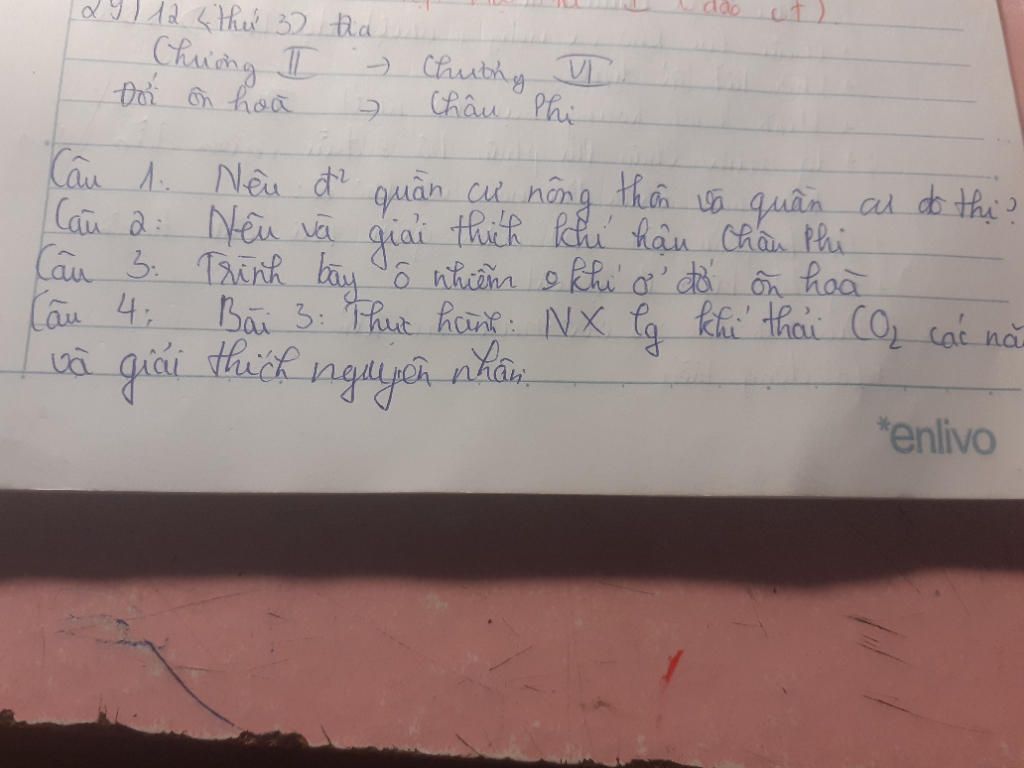 29/12 (thứ 3) Địa
Chương II → Chương VI
Đới ôn hoà → Châu Phi
Câu 1: Nêu đ² quần cư nông thôn và quần cư đô thị?
Câu 2: Nêu và giải thích khí hậu Châu Phi
Câu 3: Trình bày ô nhiễm khí ở đới ôn hoà
Câu 4: Bài 3: Thực hành: NX lg khí thải CO₂ các
và giải thích nguyên nhân.
*enlivo